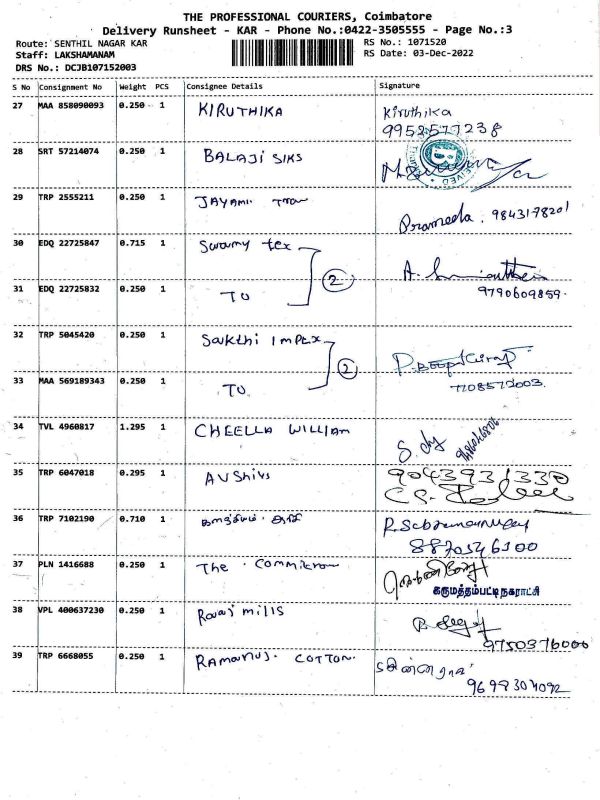 THE PROFESSIONAL COURIERS, Coimbatore
Delivery Runsheet - KAR - Phone No.:0422-3505555 - Page No.:3
Route: SENTHIL NAGAR KAR
RS No.: 1071520
Staff: LAKSHAMANAM
RS Date: 03-Dec-2022
DRS No.: DCJB107152003
S No Consignment No Weight PCS Consignee Details Signature
27 MAA 858090093 0.250 1 KIRUTHIKA Kiruthika
9952577238
28 SRT 57214074 0.250 1 BALAJI SIKS
29 TRP 2555211 0.250 1 JAYAMI Prameela. 9843178201
30 EDQ 22725847 0.715 1 Swamy tex
2
31 EDQ 22725832 0.250 1 TO 9790609859.
32 TRP 5045420 0.250 1 Sakthi Impex
2
33 MAA 569189343 0.250 1 TO
34 TVL 4960817 1.295 1 CHEELLA WILLIAM
35 TRP 6047018 0.295 1 AVShivs 9043931330
36 TRP 7102190 0.710 1
8870346300
37 PLN 1416688 0.250 1 The
கருமத்தம்பட்டி நகராட்சி
38 VPL 400637230 0.250 1 mills
9750376000
39 TRP 6668055 0.250 1 COTTON.